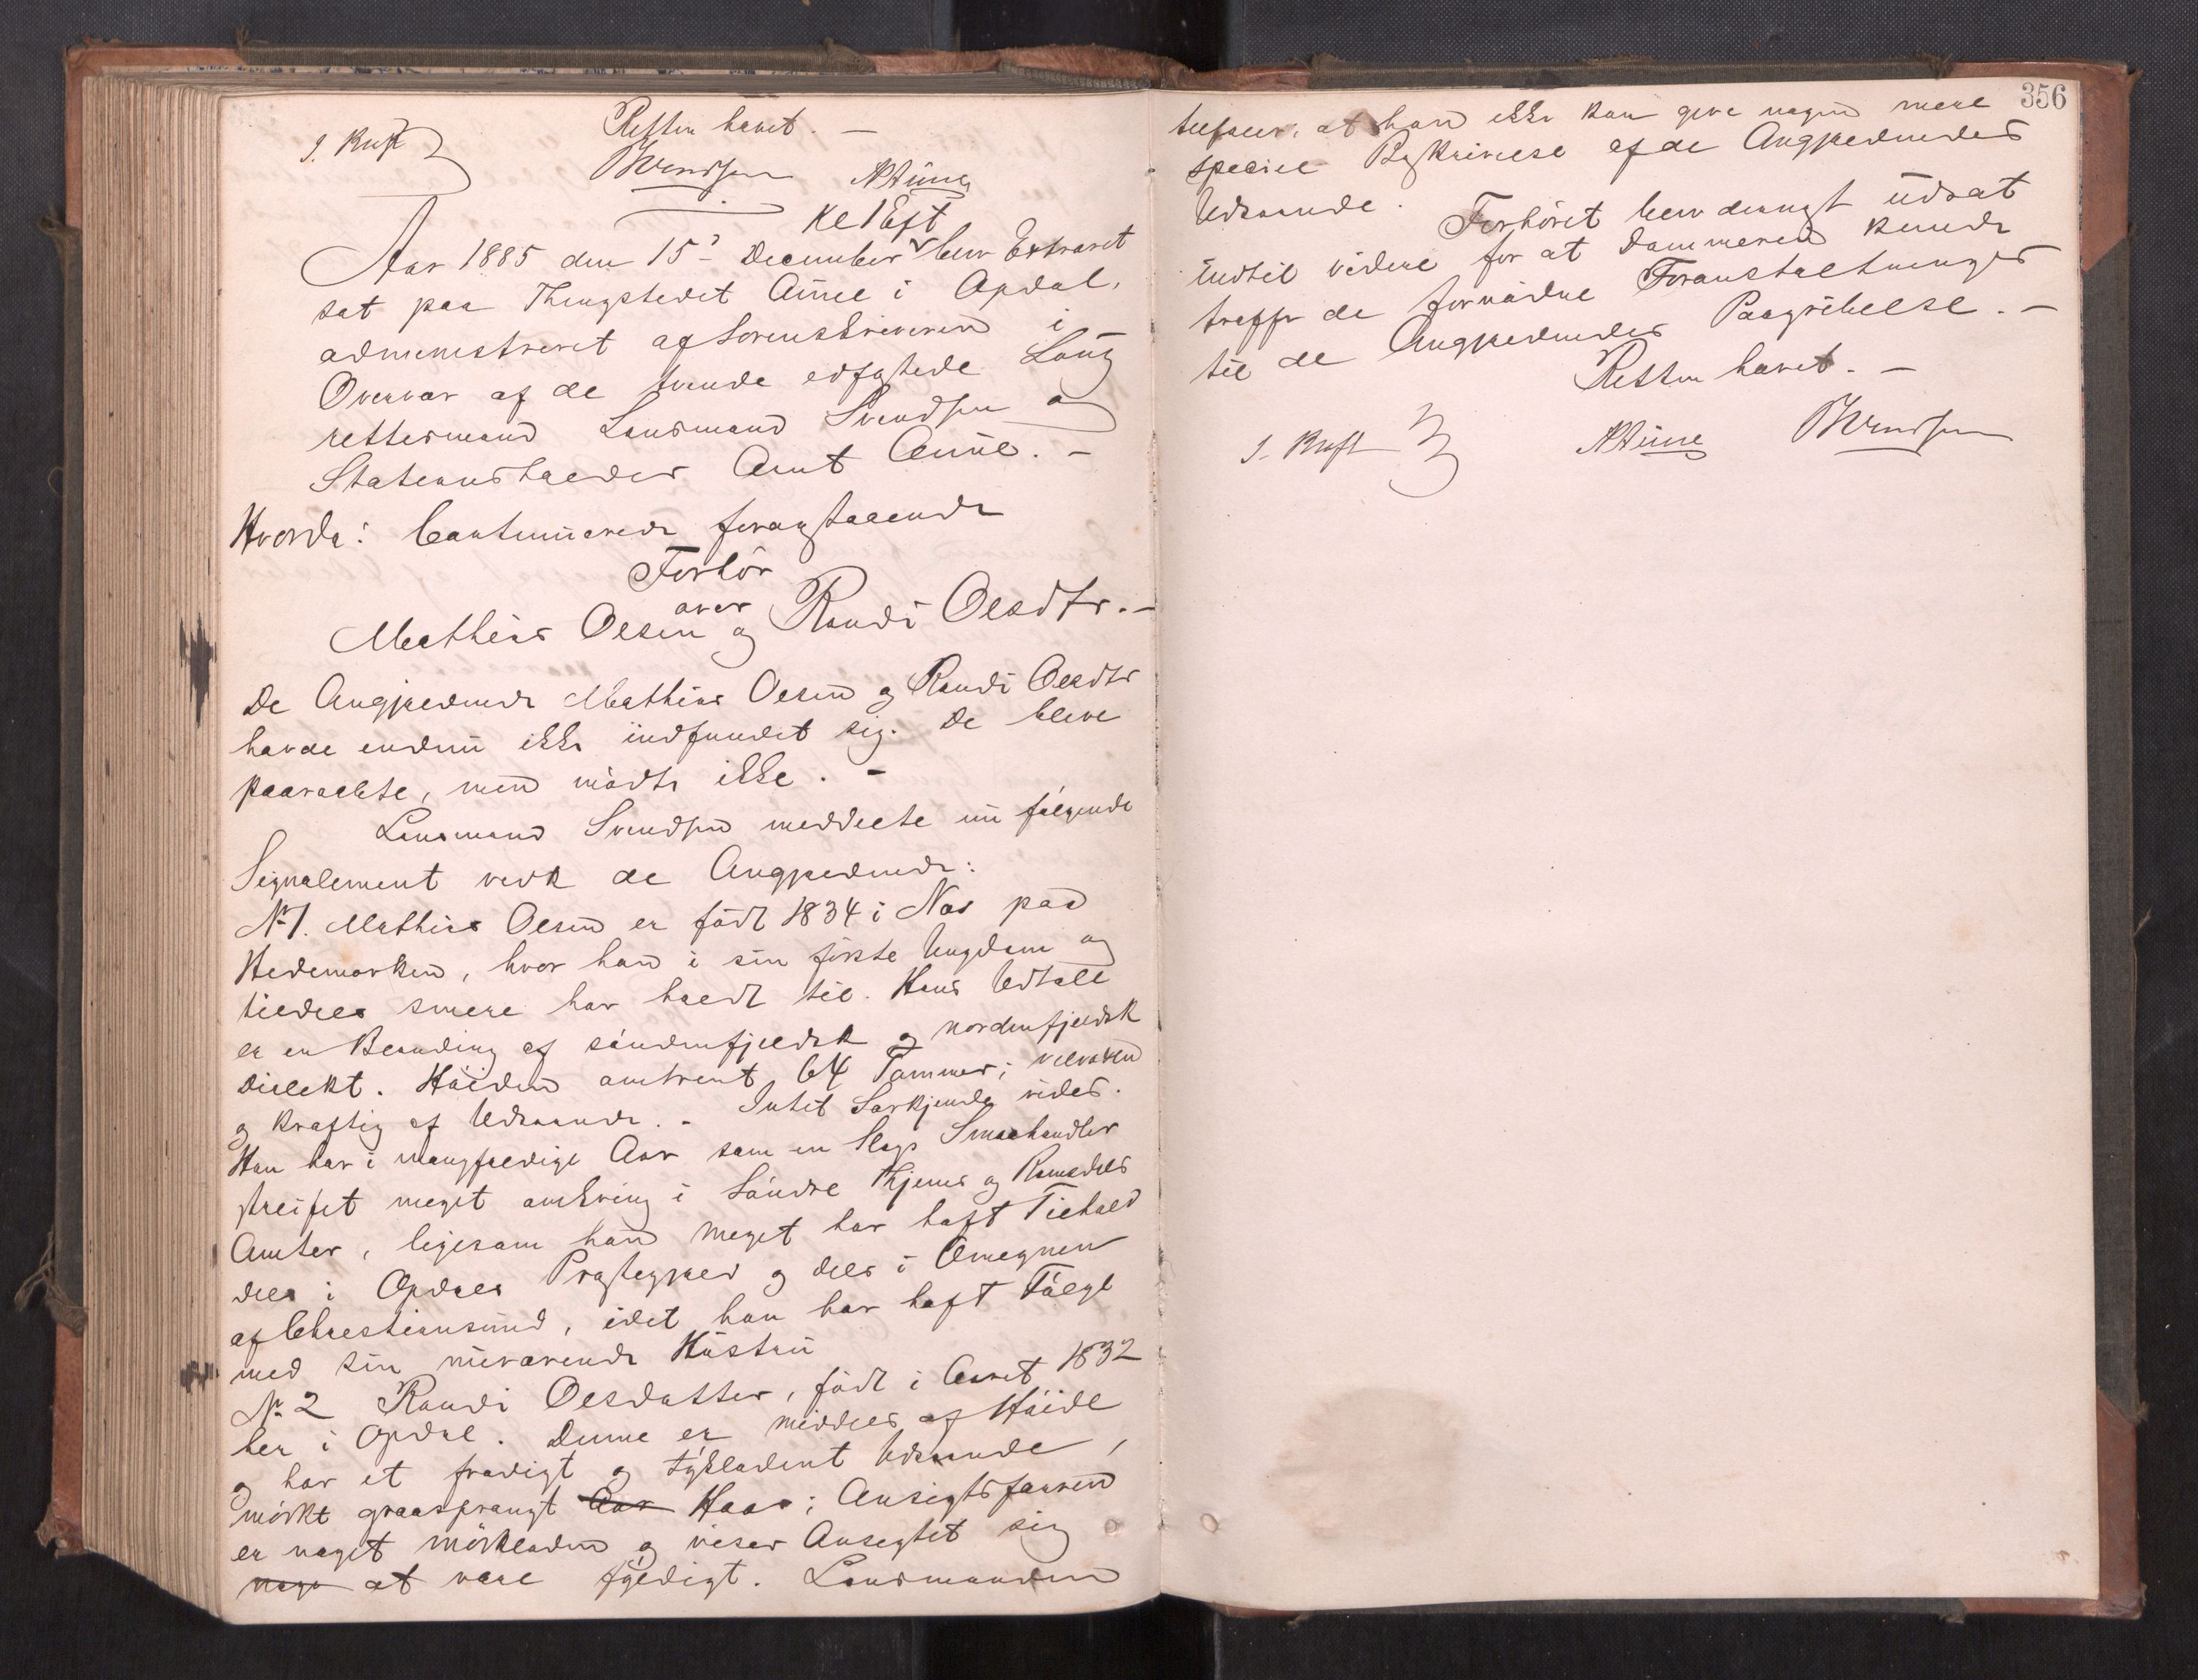 Retten hævet. —
J. Rist
BSvendsen
Kl 1 Eft
Aar 1885 den 15de December blev Extraret
sat paa Thingstedet Aune i Opdal,
administreret af Sorenskriveren i
Overvær af de tvende edfæstede Laug
rettesmænd Lensmand Svendsen og
Stationsholder Arnt Aune. —
Hvorda: Contineuerede foranstaaende
Forhör
over
Mathias Olsen og Randi Olsdtr. —
De Angjældende Mathias Olsen og Randi Olsdtr
havde endnu ikke indfundet sig. De bleve
paaraabte, men mödte ikke. —
Lensmand Svendsen meddelte nu fölgende
Signalement vedk de Angjældende:
No 1. Mathias Olsen er födt 1834 i Næs paa
Hedemarken, hvor han i sin förste Ungdom og
tildels senere har holdt til. Hans Udtale
er en Blanding af söndenfjeldsk og nordenfjeldsk
Dialekt. Höiden omtrent 64 Tommer; velvoxen
og kraftig af Udseende. - Intet Særkjende vides.
Han har i mangfoldige Aar som en Slags Smaahandler
streifet meget omkring i Söndre Thjems og Romsdals
Amter, ligesom han meget har havt Tilhold
dels i Opdals Præstegjeld og dels i Omegnen
af Christiansund, idet han har havt Fölge
med sin nuværende Hustru
No 2 Randi Olsdatter, födt i Aaret 1832
her i Opdal. Denne er middels af Höide
og har et frodigt og tykladent Udseende,
mörkt graasprængt Aar Haar; Ansigtsfarven
er noget mörkladen og viser Ansigtet sig
noge at være fyldigt. Lensmanden
356
tilföier, at han ikke kan give nogen mere
speciel Beskrivelse af de Angjældendes
Udseende.
Forhöret blev derangt udsat
indtil videre for at Dommeren kunde
træffe de fornödne Foranstaltninger
til de Angjældendes Paagribelse. —
Retten hævet. —
J. Rist
AAune
BSvendsen